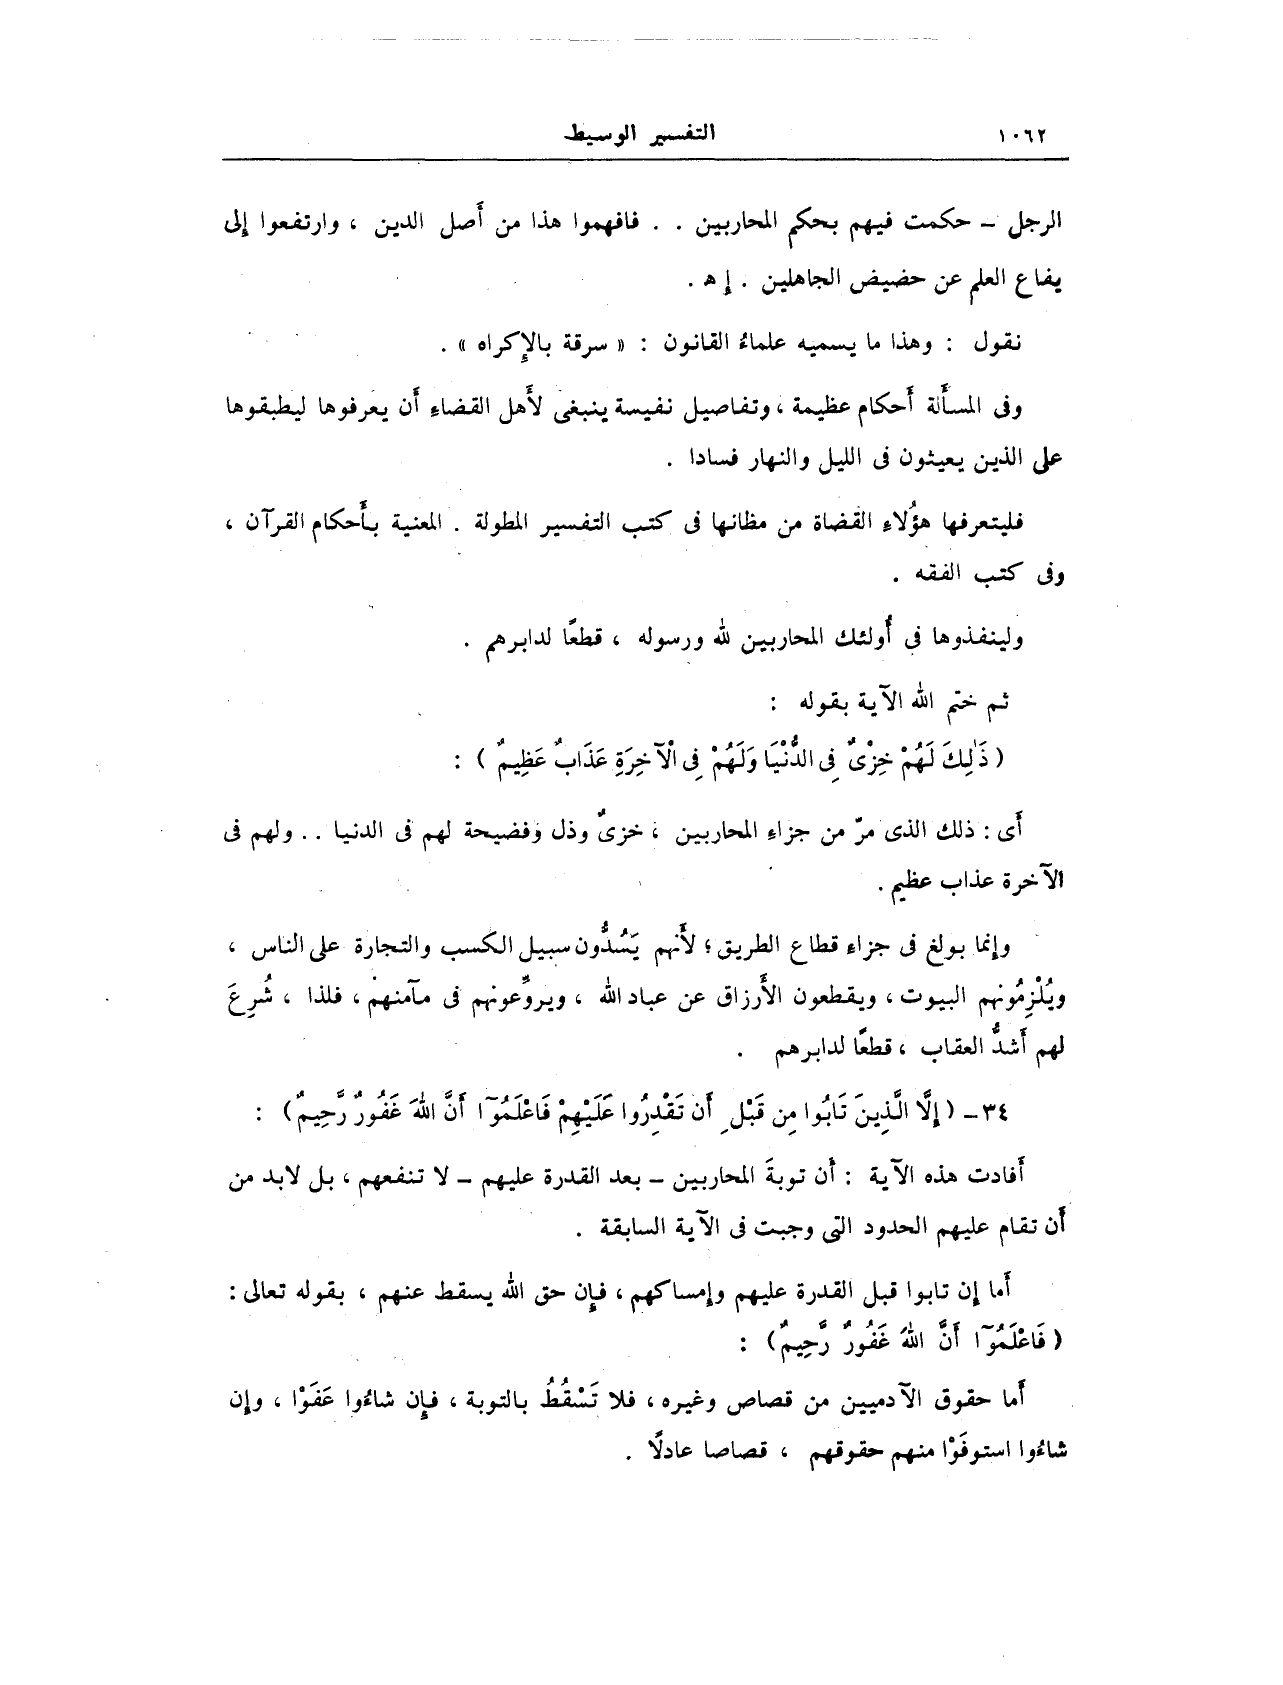 ١٠٦٢ التفسير الوسيط
الرجل – حكمت فيهم بحكم المحاربين . . فافهموا هذا من أصل الدين ، وارتفعوا إلى
يفاع العلم عن حضيض الجاهلين . إ ه .
نقول : وهذا ما يسميه علماءُ القانون : « سرقة بالإكراه » .
وفى المسألة أحكام عظيمة ، وتفاصيل نفيسة ينبغى لأهل القضاء أن يعرفوها ليطبقوها
على الذين يعيثون فى الليل والنهار فسادا .
فليتعرفها هؤُلاءِ القضاة من مظانها فى كتب التفسير المطولة . المعنية بأحكام القرآن ،
وفى كتب الفقه .
ولينفذوها فى أُولئك المحاربين لله ورسوله ، قطعًا لدابرهم .
ثم ختم الله الآية بقوله :
( ذَٰلِكَ لَهُمْ خِزْىٌ فِى الدُّنْيَا وَلَهُمْ فِى الْآخِرَةِ عَذَابٌ عَظِيمٌ ) :
أى : ذلك الذى مرّ من جزاءِ المحاربين ، خزىٌ وذل وفضيحة لهم فى الدنيا . . ولهم فى
الآخرة عذاب عظيم .
وإنما بولغ فى جزاءِ قطاع الطريق ؛ لأنهم يَسُدُّون سبيل الكسب والتجارة على الناس ،
ويُلْزِمُونهم البيوت ، ويقطعون الأرزاق عن عباد الله ، ويروِّعونهم فى مآمنهمْ ، فلذا ، شُرِعَ
لهم أشدُّ العقاب ، قطعًا لدابرهم .
٣٤ – ( إِلَّا الَّذِينَ تَابُوا مِن قَبْلِ أَن تَقْدِرُوا عَلَيْهِمْ فَاعْلَمُوٓا أَنَّ اللهَ غَفُورٌ رَّحِيمٌ ) :
أفادت هذه الآية : أن توبةَ المحاربين – بعد القدرة عليهم – لا تنفعهم ، بل لابد من
أن تقام عليهم الحدود التى وجبت فى الآية السابقة .
أما إن تابوا قبل القدرة عليهم وإمساكهم ، فإن حق الله يسقط عنهم ، بقوله تعالى :
( فَاعْلَمُوٓا أَنَّ اللهَ غَفُورٌ رَّحِيمٌ ) :
أما حقوق الآدميين من قصاص وغيره ، فلا تَسْقُطُ بالتوبة ، فإن شاءُوا عَفَوْا ، وإن
شاءُوا استوفَوْا منهم حقوقهم ، قصاصا عادلًا .